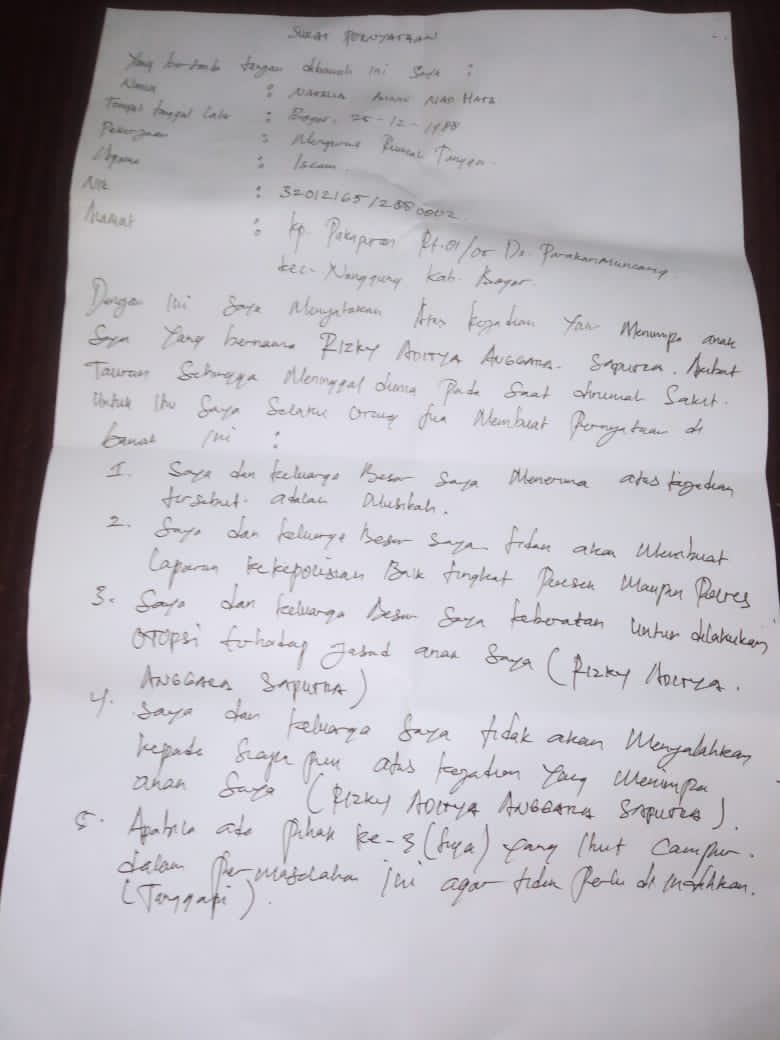 SURAT PERNYATAAN
Yang bertanda tangan dibawah ini Saya :
Nama :
Tempat tanggal lahir : Bogor, 25-12-1988
Pekerjaan : Mengurus Rumah Tangga.
Agama : Islam.
NIK : 3201216512880002
Alamat : kp. Pakapuran Rt.01/05 Ds. Parakanmuncang
kec- Nanggung Kab. Bogor.
Dengan ini Saya Menyatakan Atas kejadian Yang Menimpa anak
Saya Yang bernama RIZKY ADITYA ANGGARA SAPUTRA. Akibat
Tawuran Sehingga Meninggal dunia Pada Saat dirumah Sakit.
Untuk itu Saya Selaku Orang tua Membuat Pernyataan di
bawah ini :
1. Saya dan keluarga Besar Saya Menerima atas kejadian
tersebut adalah Musibah.
2. Saya dan keluarga Besar saya tidak akan Membuat
Laporan kekepolisian Baik tingkat Polsek Maupun Polres
3. Saya dan keluarga Besar Saya keberatan Untuk dilakukan
OTOPSI terhadap jasad anak Saya (RIZKY ADITYA.
ANGGARA SAPUTRA)
4. Saya dan keluarga Saya tidak akan Menyalahkan
kepada siapa pun atas kejadian Yang Menimpa
anak Saya (RIZKY ADITYA ANGGARA SAPUTRA).
5. Apabila ada Pihak ke-3 (tiga) Yang Ikut Campur.
dalam permasalahan ini agar tidak Perlu di
(Tanggapi).